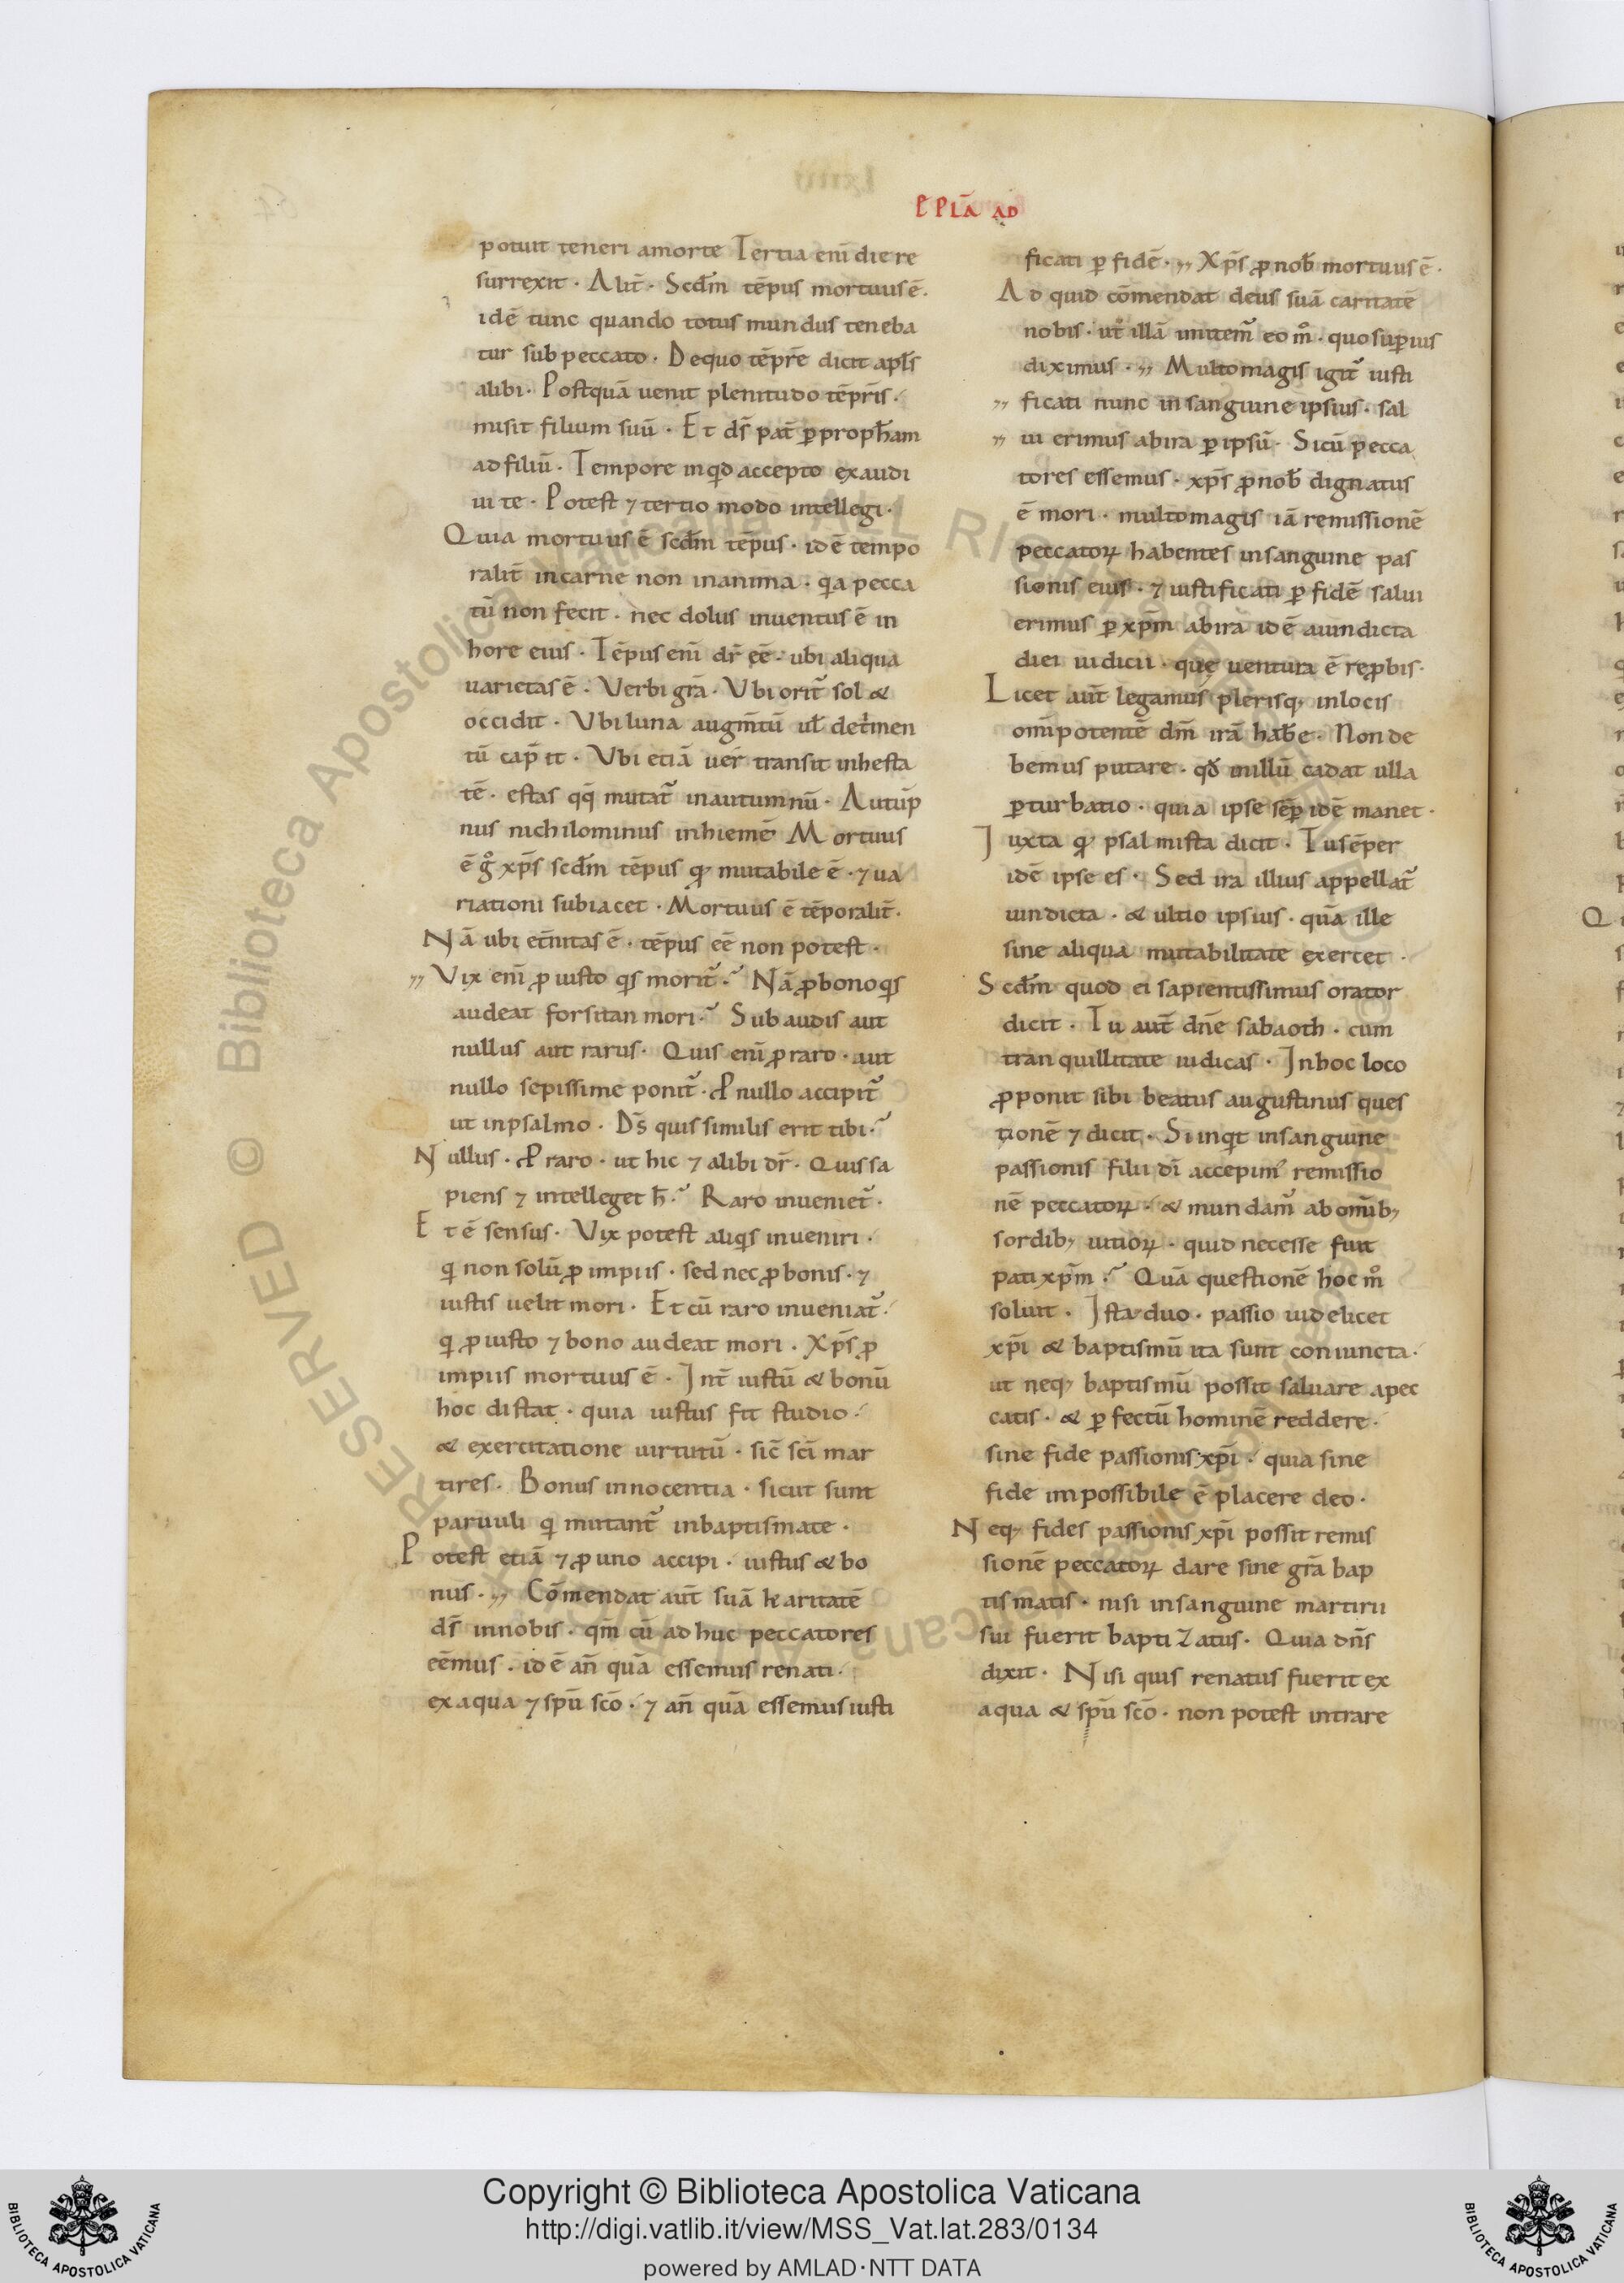 EPLA AD
potuit teneri amorte Tertia eni̅ die re
surrexit · Alit̅ · Scd̅m te̅pus mortuus e̅ ·
id e̅ tunc quando totus mundus teneba
tur sub peccato · Dequo te̅pr̅e dicit apl̅s
alibi · Postqua̅ uenit plenitudo te̅pr̅is ·
misit filium suu̅ · Et ds̅ pat̅ ꝑ proph̅am
ad filiu̅ · Tempore inq̅d accepto exaudi
ui te · Potest ⁊ tertio modo intellegi ·
Quia mortuus e̅ scd̅m te̅pus · id e̅ tempo
ralit̅ incarne non inanima · q̅a pecca
tu̅ non fecit · nec dolus inuentus e̅ in
hore eius · Te̅pus eni̅ dr̅ ee̅ · ubi aliqua
uarietas e̅ · Verbi gr̅a · Vbi orit̅ sol &
occidit · Vbi luna augm̅tu̅ ul̅ det̅men
tu̅ cap̅ it · Vbi etia̅ uer transit inhesta
te̅ · estas qq̅ mutat̅ inautumnu̅ · Autup̅
nus nichilominus inhieme̅ Mortuus
e̅ g̊ xp̅s scd̅m te̅pus q̅ mutabile e̅ · ⁊ ua
riationi subiacet · Mortuus e̅ te̅poralit̅ ·
Na̅ ubi et̅nitas e̅ · te̅pus ee̅ non potest ·
,, Vix eni̅ ꝓ iusto qs̅ morit̅ · Na̅ ꝓ bono qs̅
audeat forsitan mori · Sub audis aut
nullus aut rarus · Quis eni̅ ꝓ raro · aut
nullo sepissime ponit̅ · Ꝓ nullo accipit̅
ut inpsalmo · Ds̅ quis similis erit tibi ·
Nullus · Ꝓ raro · ut hic ⁊ alibi dr̅ · Quis sa
piens ⁊ intelleget h̅ · Raro inueniet̅ ·
Et e̅ sensus · Vix potest aliqs̅ inueniri ·
q̅ non solu̅ ꝓ impiis · sed nec ꝓ bonis · ⁊
iustis uelit mori · Et cu̅ raro inueniat̅ ·
q̅ ꝓ iusto ⁊ bono audeat mori · Xp̅s ꝓ
impiis mortuus e̅ · Int̅ iustu̅ & bonu̅
hoc distat · quia iustus fit studio ·
& exercitatione uirtutu̅ · sic̅ sc̅i mar
tires · Bonus innocentia · sicut sunt
paruuli q̅ mutant̅ inbaptismate ·
Potest etia̅ ⁊ ꝓ uno accipi · iustus & bo
nus · ,, Co̅mendat aut̅ sua̅ karitate̅
ds̅ innobis · qm̅ cu̅ adhuc peccatores
ee̅mus · id e̅ an̅ qua̅ essemus renati ·
ex aqua ⁊ spu̅ sc̅o · ⁊ an̅ qua̅ essemus iusti
ficati ꝑ fide̅ · ,, Xp̅s ꝓ nob̅ mortuus e̅ ·
Ad quid co̅mendat deus sua̅ caritate̅
nobis · ut̊ illa̅ imitem̅ eo m̊ · quo suꝑius
diximus · ,, Multo magis igit̅ iusti
,, ficati nunc in sanguine ipsius · sal
,, ui erimus abira ꝑ ipsu̅ · Sicu̅ pecca
tores essemus · xp̅s ꝓ nob̅ dignatus
e̅ mori · multo magis ia̅ remissione̅
peccatoꝝ habentes insanguine pas
sionis eius · ⁊ iustificati ꝑ fide̅ salui
erimus ꝑ xp̅m abira id e̅ auindicta
diei iudicii · quę uentura e̅ reꝓbis ·
Licet aut̅ legamus plerisq; inlocis
omi̅potente̅ dm̅ ira̅ hab̅e · Non de
bemus putare · qd̅ inillu̅ cadat ulla
ꝑturbatio · quia ipse se̅ꝑ ide̅ manet ·
Iuxta q̅ psalmista dicit · Tu se̅per
ide̅ ipse es · Sed ira illius appellat̅
uindicta · & ultio ipsius · qua̅ ille
sine aliqua mutabilitate exercet ·
Scd̅m quod ei sapientissimus orator
dicit · Tu aut̅ dn̅e sabaoth · cum
tranquillitate iudicas · Inhoc loco
ꝓponit sibi beatus augustinus ques
tione̅ ⁊ dicit · Si inq̅t insanguine
passionis filii di̅ accepim̅ remissio
ne̅ peccatoꝝ · & mundam̅ ab omi̅b;
sordib; uitioꝝ · quid necesse fuit
pati xp̅m · Qua̅ questione̅ hoc m̊
soluit · Ista duo · passio uidelicet
xp̅i & baptismu̅ ita sunt coniuncta ·
ut neq; baptismu̅ possit saluare apec
catis · & ꝑfectu̅ homine̅ reddere ·
sine fide passionis xp̅i · quia sine
fide impossibile e̅ placere deo ·
Neq; fides passionis xp̅i possit remis
sione̅ peccatoꝝ dare sine gr̅a bap
tismatis · nisi insanguine martirii
sui fuerit baptizatus · Quia dn̅s
dixit · Nisi quis renatus fuerit ex
aqua & spu̅ sc̅o · non potest intrare
Copyright © Biblioteca Apostolica Vaticana
http://digi.vatlib.it/view/MSS_Vat.lat.283/0134
powered by AMLAD·NTT DATA
BIBLIOTECA APOSTOLICA VATICANA
BIBLIOTECA APOSTOLICA VATICANA